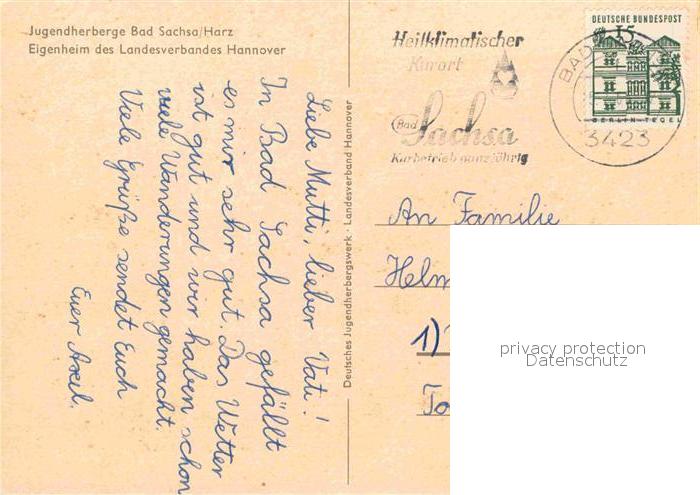 Jugendherberge Bad Sachsa/Harz
Eigenheim des Landesverbandes Hannover
Liebe Mutti, lieber Vati!
In Bad Sachsa gefällt
es mir sehr gut. Das Wetter
ist gut und wir haben schon
viele Wanderungen gemacht.
Viele Grüße sendet Euch
Euer Axel.
Deutsches Jugendherbergswerk · Landesverband Hannover
Heilklimatischer
Kurort
Bad Sachsa
Kurbetrieb ganzjährig
DEUTSCHE BUNDESPOST
15
BERLIN-TEGEL
BAD
3423
An Familie
Helm
1)
To
privacy protection
Datenschutz